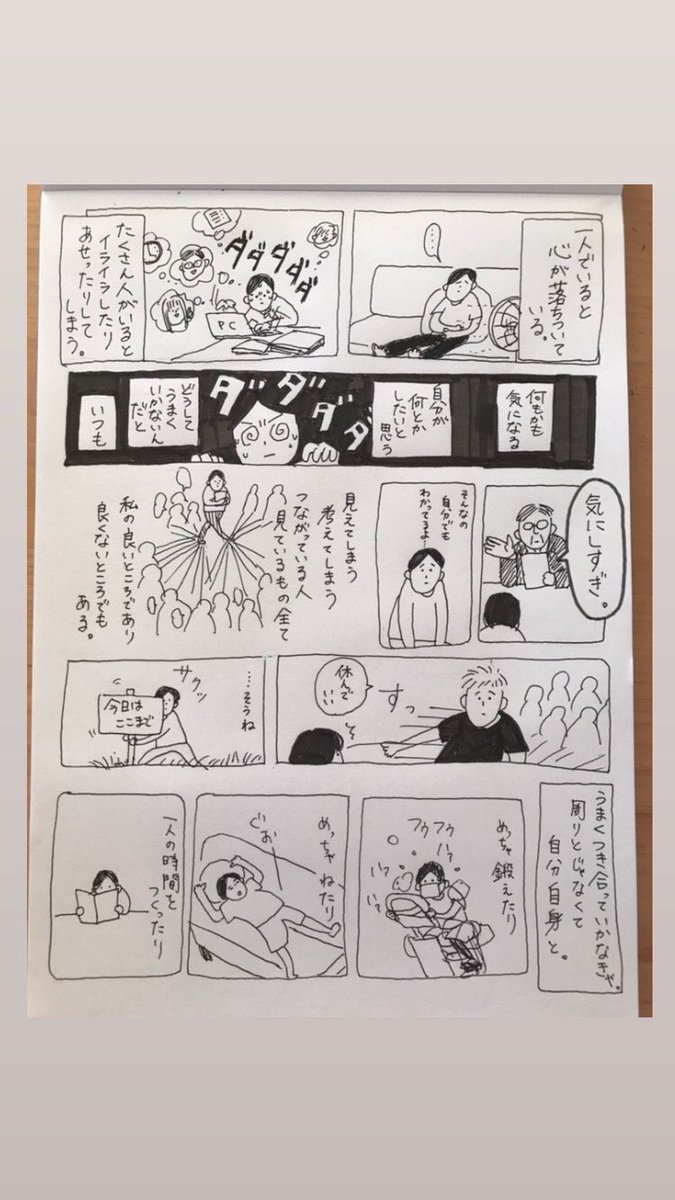 一人でいると
心が落ちついて
いる。
・・・・
たくさん人がいると
イライラしたり
あせったりして
しまう。
ダダダダダ
PC
何もかも
気になる
自分が
何とか
したいと
思う
ダダダダ
どうして
うまく
いかないん
だと
いつも
気にしすぎ。
そんなの
自分でも
わかってるよ…
見えてしまう
考えてしまう
つながっている人
見ているもの全て
私の良いところであり
良くないところでも
ある。
すっ
休んで
いい
……そうね
サクッ
今日は
ここまで
うまくつき合っていかなきゃ。
周りとじゃなくて
自分自身と。
めっちゃ鍛えたり
フウフウ
ハァ?
い?
い?
めっちゃねたり
ぐお
一人の時間を
つくったり